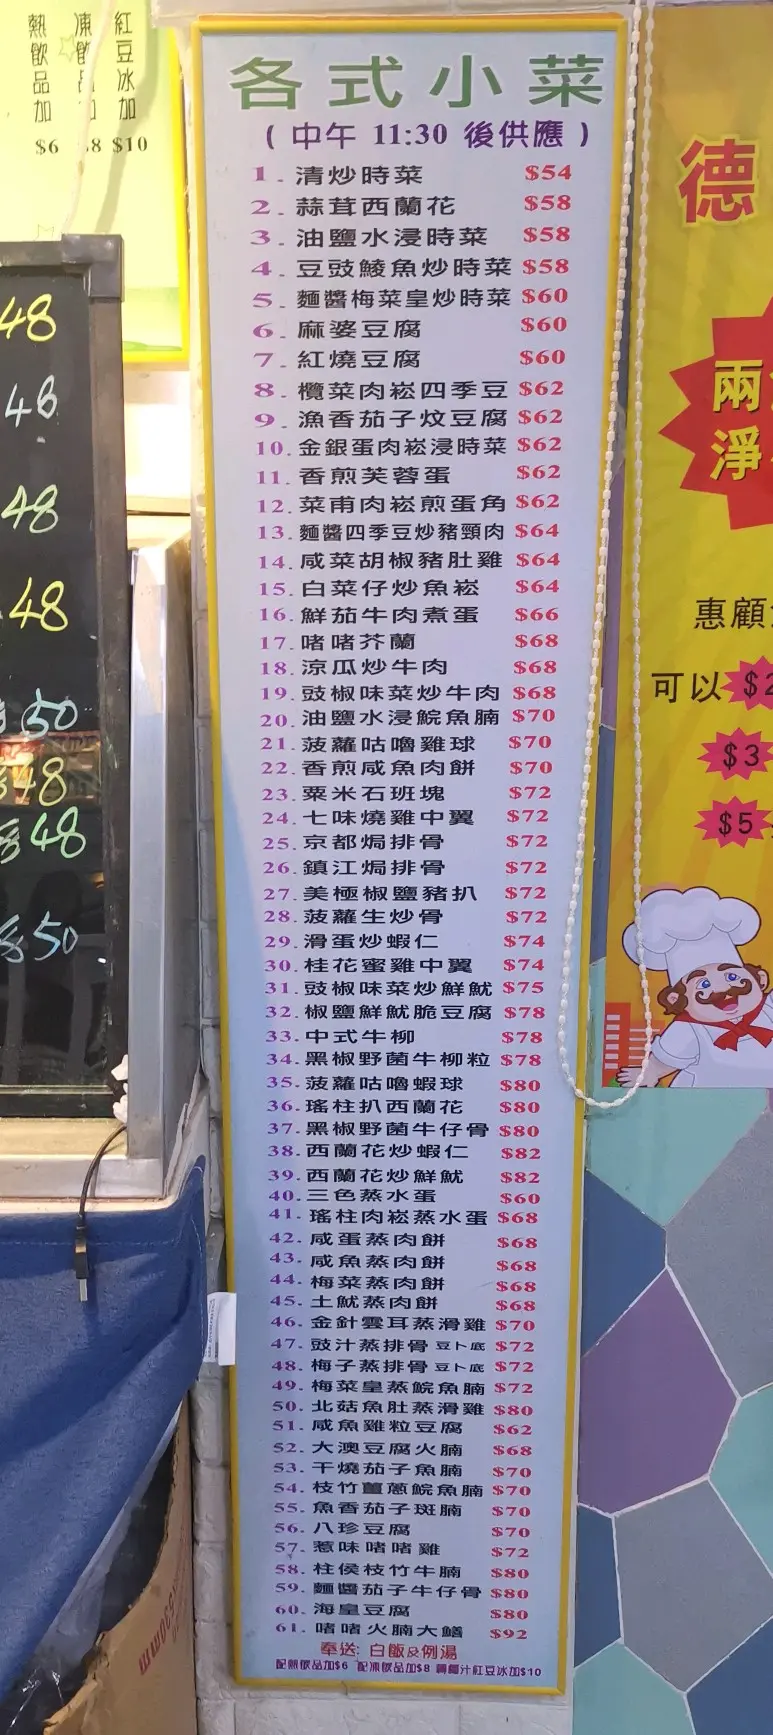 熱飲品加 $6
凍飲品加 $8
紅豆冰加 $10
48
48
48
48
50
48
48
50
各式小菜
(中午 11:30 後供應)
1. 清炒時菜 $54
2. 蒜茸西蘭花 $58
3. 油鹽水浸時菜 $58
4. 豆豉鯪魚炒時菜 $58
5. 麵醬梅菜皇炒時菜 $60
6. 麻婆豆腐 $60
7. 紅燒豆腐 $60
8. 欖菜肉崧四季豆 $62
9. 漁香茄子炆豆腐 $62
10. 金銀蛋肉崧浸時菜 $62
11. 香煎芙蓉蛋 $62
12. 菜甫肉崧煎蛋角 $62
13. 麵醬四季豆炒豬頸肉 $64
14. 咸菜胡椒豬肚雞 $64
15. 白菜仔炒魚崧 $64
16. 鮮茄牛肉煮蛋 $66
17. 啫啫芥蘭 $68
18. 涼瓜炒牛肉 $68
19. 豉椒味菜炒牛肉 $68
20. 油鹽水浸鯇魚腩 $70
21. 菠蘿咕嚕雞球 $70
22. 香煎咸魚肉餅 $70
23. 粟米石班塊 $72
24. 七味燒雞中翼 $72
25. 京都焗排骨 $72
26. 鎮江焗排骨 $72
27. 美極椒鹽豬扒 $72
28. 菠蘿生炒骨 $72
29. 滑蛋炒蝦仁 $74
30. 桂花蜜雞中翼 $74
31. 豉椒味菜炒鮮魷 $75
32. 椒鹽鮮魷脆豆腐 $78
33. 中式牛柳 $78
34. 黑椒野菌牛柳粒 $78
35. 菠蘿咕嚕蝦球 $80
36. 瑤柱扒西蘭花 $80
37. 黑椒野菌牛仔骨 $80
38. 西蘭花炒蝦仁 $82
39. 西蘭花炒鮮魷 $82
40. 三色蒸水蛋 $60
41. 瑤柱肉崧蒸水蛋 $68
42. 咸蛋蒸肉餅 $68
43. 咸魚蒸肉餅 $68
44. 梅菜蒸肉餅 $68
45. 土魷蒸肉餅 $68
46. 金針雲耳蒸滑雞 $70
47. 豉汁蒸排骨 豆卜底 $72
48. 梅子蒸排骨 豆卜底 $72
49. 梅菜皇蒸鯇魚腩 $72
50. 北菇魚肚蒸滑雞 $80
51. 咸魚雞粒豆腐 $62
52. 大澳豆腐火腩 $68
53. 干燒茄子魚腩 $70
54. 枝竹薑蔥鯇魚腩 $70
55. 魚香茄子斑腩 $70
56. 八珍豆腐 $70
57. 惹味啫啫雞 $72
58. 柱侯枝竹牛腩 $80
59. 麵醬茄子牛仔骨 $80
60. 海皇豆腐 $80
61. 啫啫火腩大鱔 $92
奉送: 白飯及例湯
配熱飲品加$6 配凍飲品加$8 轉椰汁紅豆冰加$10
德
兩
淨
惠顧
可以 $2
$3
$5